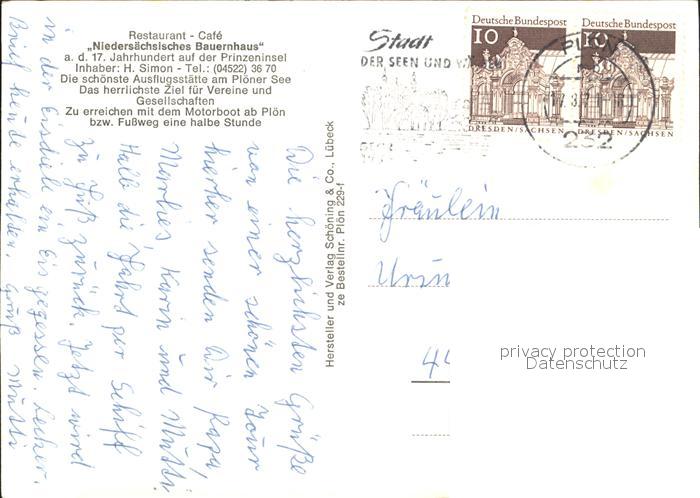 Restaurant - Café
„Niedersächsisches Bauernhaus"
a. d. 17. Jahrhundert auf der Prinzeninsel
Inhaber: H. Simon - Tel.: (04522) 36 70
Die schönste Ausflugsstätte am Plöner See
Das herrlichste Ziel für Vereine und
Gesellschaften
Zu erreichen mit dem Motorboot ab Plön
bzw. Fußweg eine halbe Stunde
Die herzlichsten Grüße
von einer schönen Tour
hierher senden Dir Papa,
Karin und Mutti.
Halb die Fahrt per Schiff
zu Fuß zurück. Jetzt wird
in der Eisdiele ein Eis gegessen. Lecker.
Brief heute erhalten. Gruß Mutti
Hersteller und Verlag Schöning & Co., Lübeck
ze Bestellnr. Plön 229-f
Stadt
DER SEEN UND
Deutsche Bundespost
10
DRESDEN/SACHSEN
Deutsche Bundespost
10
DRESDEN/SACHSEN
PLÖN
232
Fräulein
44
privacy protection
Datenschutz